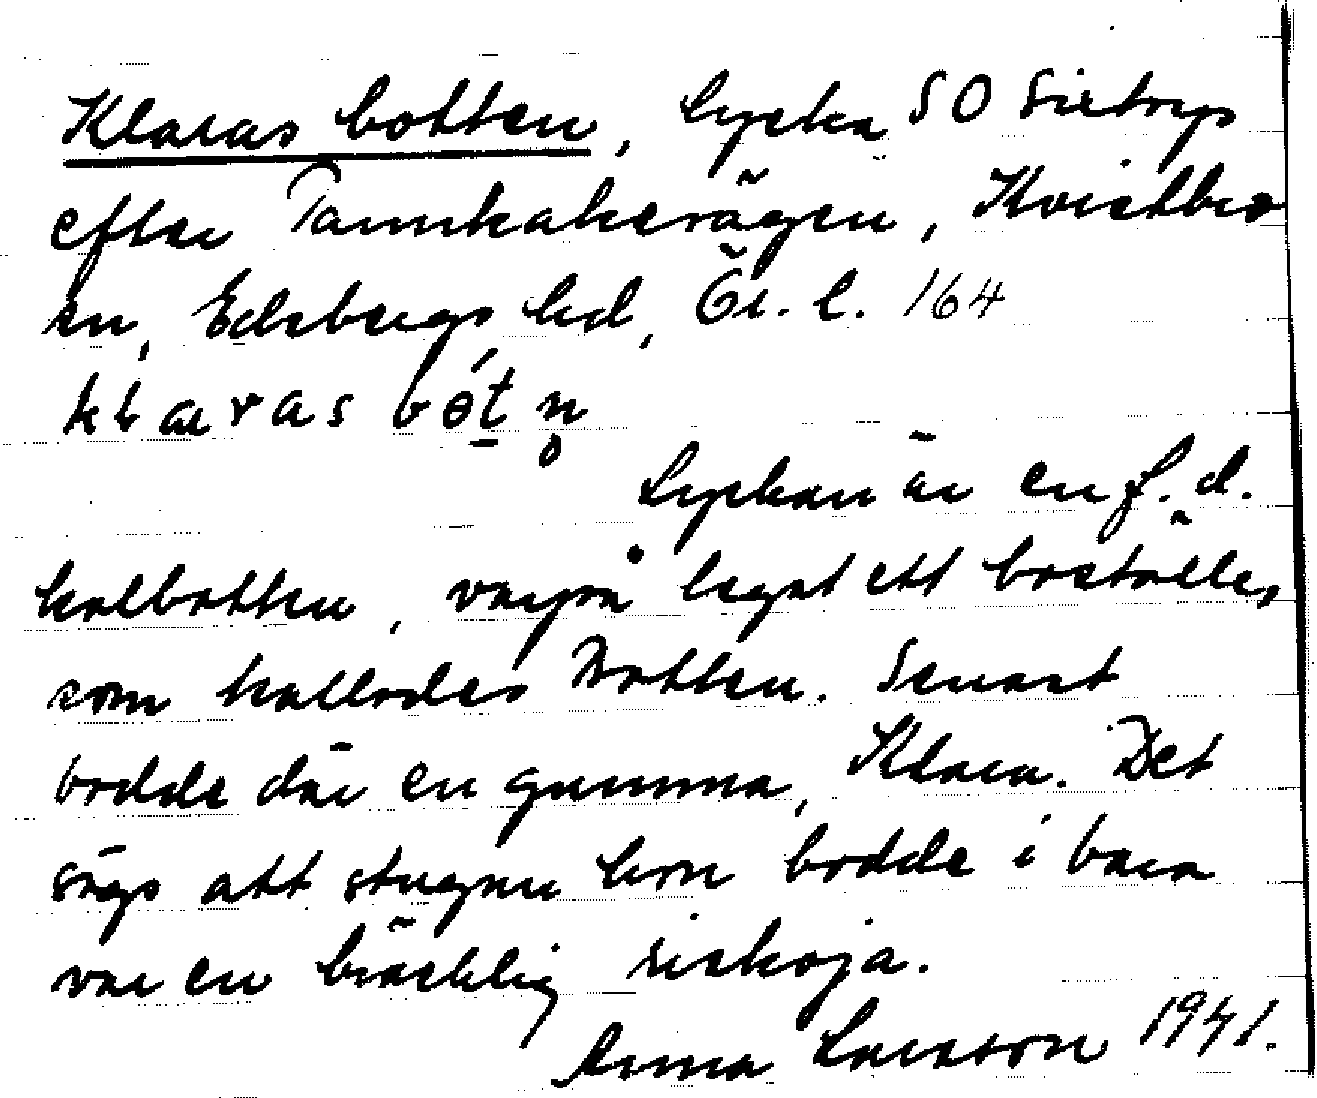 Klaras botten, lycka SO Sixtorp
efter Tannkakevägen, Kvistbro
sn, Edsbergs hd, Ör. l. 164
klaras bót̲n̥
Lyckan är en f.d.
kolbotten, varpå legat ett boställe,
som kallades Botten. Senast
bodde där en gumma, Klara. Det
sägs att stugan hon bodde i bara
var en bräcklig riskoja.
Anna Larsson 1941.